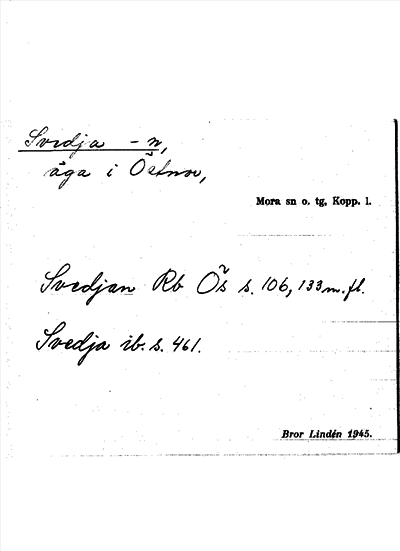 Svedja -n,
äga i Östnor,
Mora sn o. tg, Kopp. l.
Svedjan Rb Ös s. 106, 133 m. fl.
Svedja ib. s. 461.
Bror Lindén 1945.